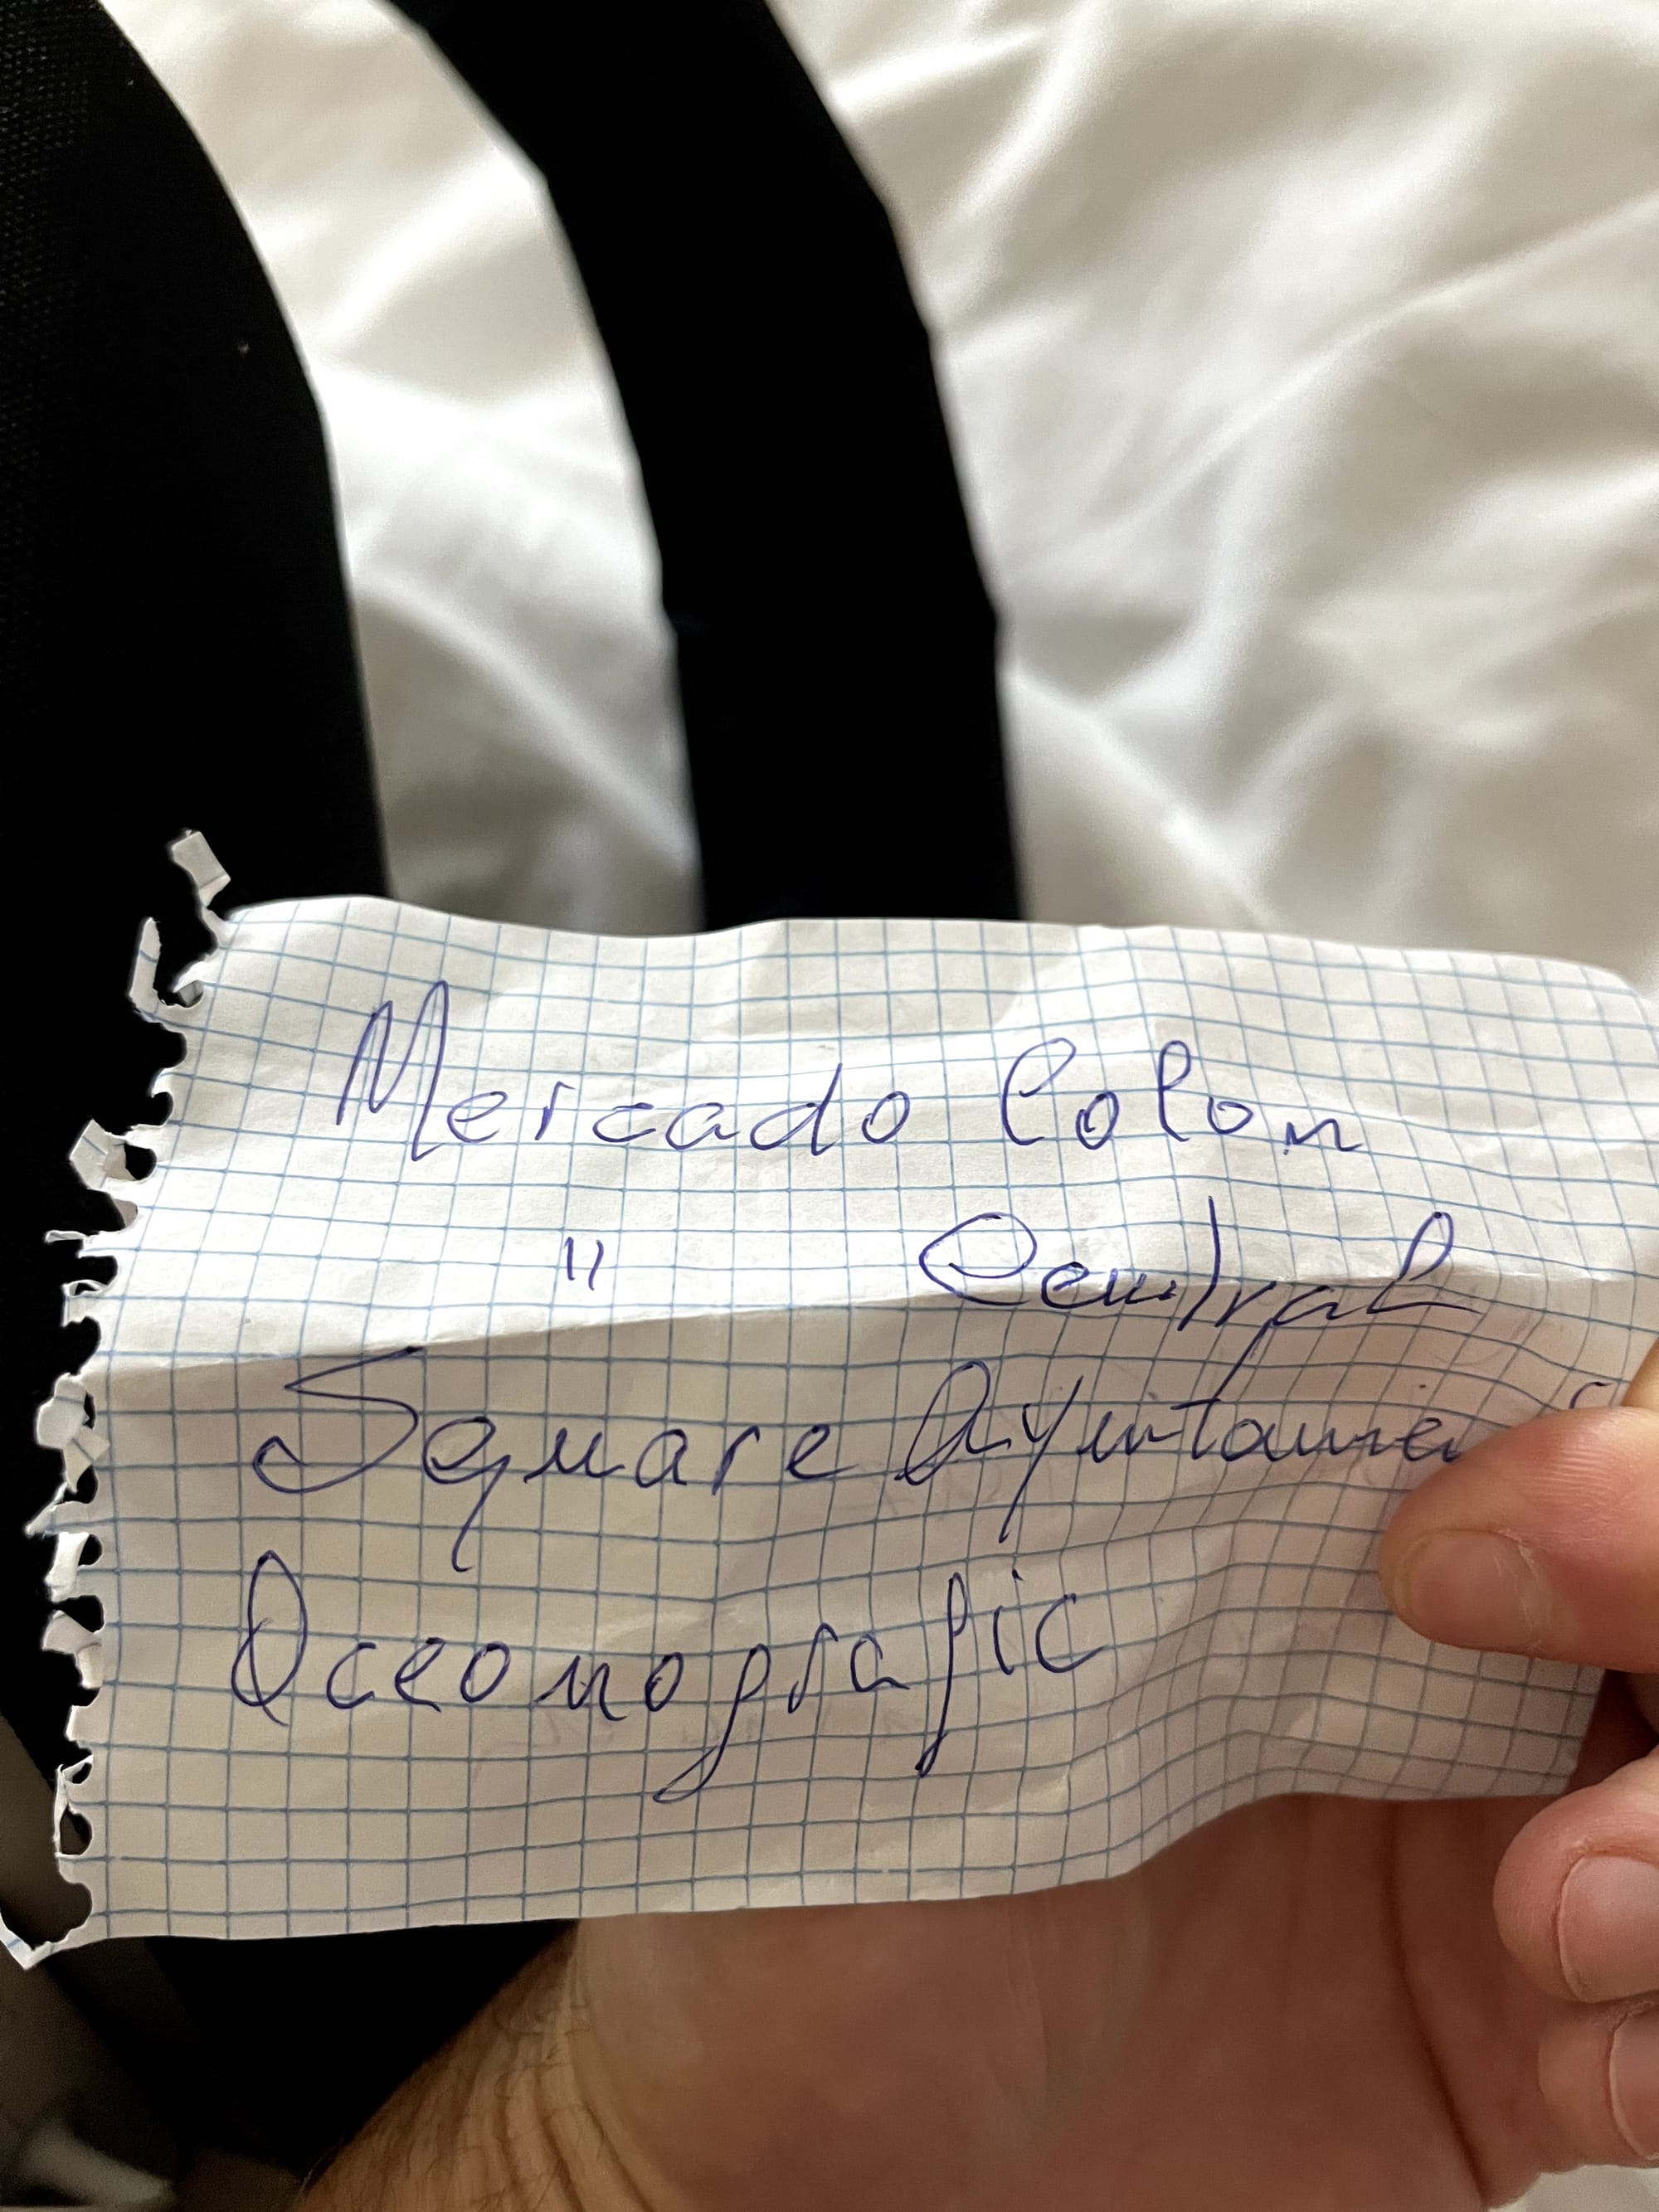 Mercado Colon
" Central
Square Ayuntamien
Oceonografic